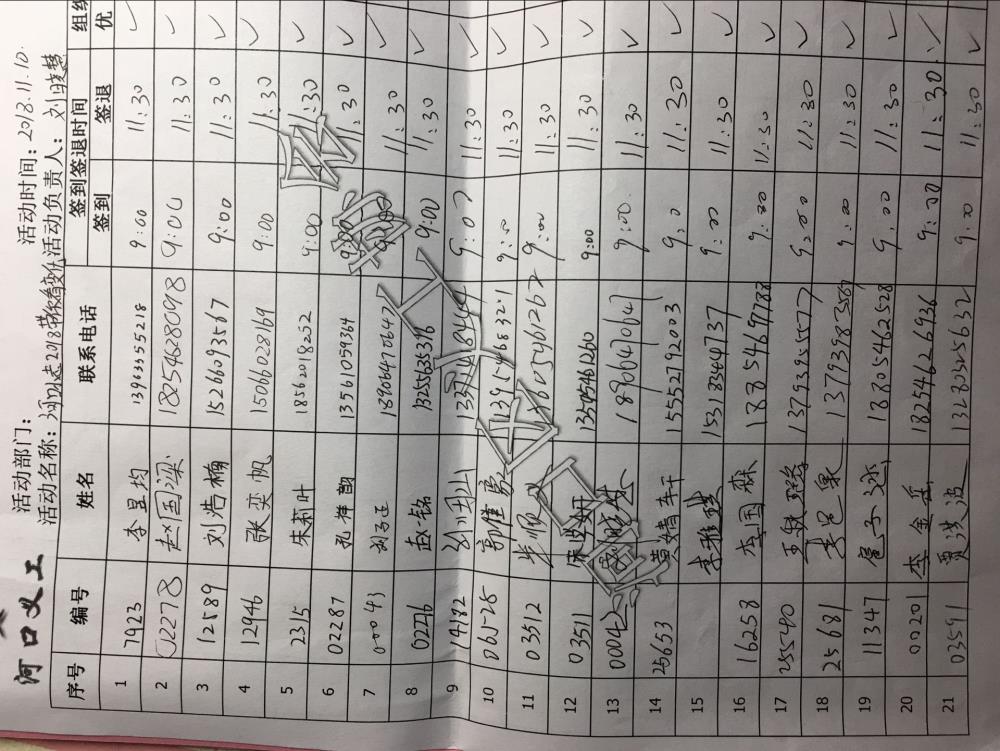 河口义工
活动部门： 活动时间：2018.11.10.
活动名称： 活动负责人：刘晓慧
序号 编号 姓名 联系电话 签到签退时间 组织
签到 签退 优
1 7923 李显均 13963555218 9:00 11:30 ✓
2 02278 赵国梁 18254628098 9:00 11:30 ✓
3 12589 刘浩楠 15266093567 9:00 11:30 ✓
4 12946 张奕帆 15066028169 9:00 11:30 ✓
5 2315 朱莉叶 18562018252 9:00 11:30 ✓
6 02287 孔祥韵 13561059364 9:00 11:30 ✓
7 00043 刘子正 18906470647 9:00 11:30 ✓
8 02216 赵铭 13255635376 9:00 11:30 ✓
9 14182 9:00 11:30 ✓
10 06525 9:00 11:30 ✓
11 03512 9:00 11:30 ✓
12 03511 13505461260 9:00 11:30 ✓
13 00042 18906470647 9:00 11:30 ✓
14 26653 黄婧 15552792003 9:00 11:30 ✓
15 李雅琪 15318344737 9:00 11:30 ✓
16 16258 李国森 18354697788 9:00 11:30 ✓
17 25540 13793955777 9:00 11:30 ✓
18 25681 9:00 11:30 ✓
19 11347 18805462528 9:00 11:30 ✓
20 00201 李金岳 18254626936 9:00 11:30 ✓
21 03591 贾洪波 13280325632 9:00 11:30 ✓